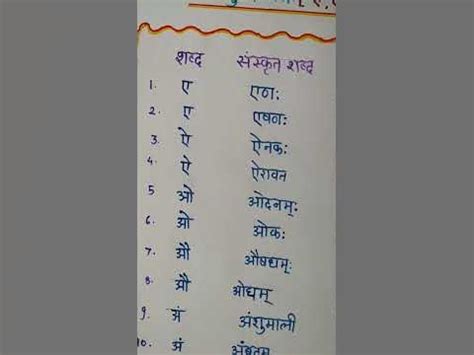 शब्द संस्कृत शब्द
1. ए एणः
2. ए एषणः
3. ऐ ऐनकः
4. ऐ ऐरावन
5 ओ ओदनम्ः
6. ओ ओकः
7. औ औषधम्ः
8. औ ओधम्
9. अं अंशुमाली
10. अं